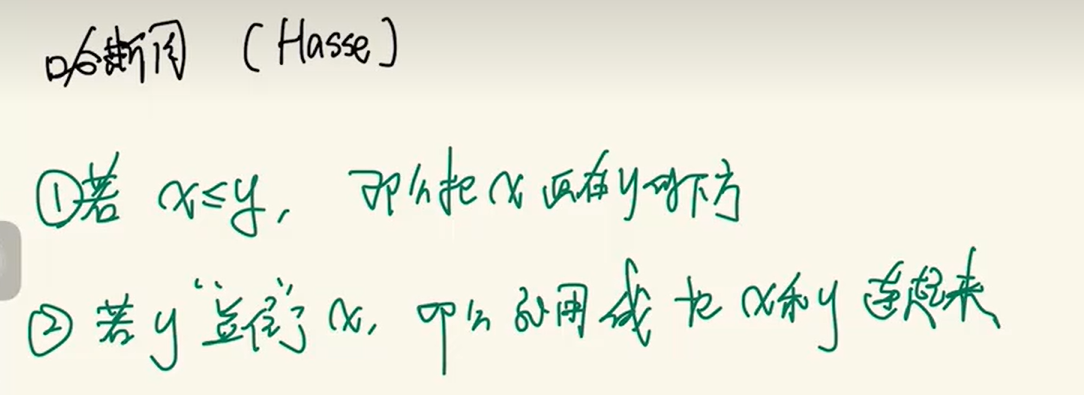 哈斯图 (Hasse)
①若 x≤y, 那么把x画在y的下方
②若y“盖住”了x, 那么就用线把x和y连起来